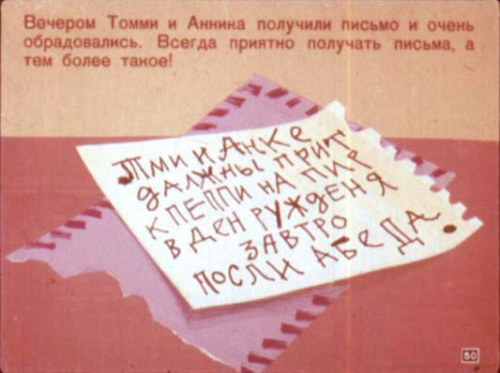 Вечером Томми и Анника получили письмо и очень
обрадовались. Всегда приятно получать письма, а
тем более такое!
ТМИ И АНКЕ
ДАЛЖНЫ ПРИТ
К ПЕППИ НА ПИР
В ДЕН РУЖДЕНЯ
ЗАВТРО
ПОСЛИ АБЕДА.
50